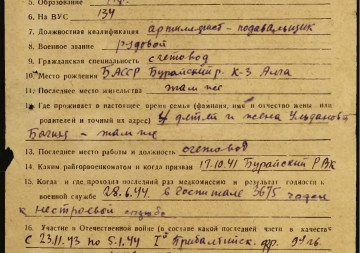 5. Образование
6. На ВУС 134
7. Должностная квалификация артиллерист-подавальщик
8. Военное звание рядовой
9. Гражданская специальность счетовод
10. Место рождения БАССР Бурайский р. к-з Алга
11. Последнее место жительства там же
12. Где проживает в настоящее время семья (фамилия, имя и отчество жены или
родителей и точный их адрес) 4 детей и жена Ульданова
Багия - там же
13. Последнее место работы и должность счетовод
14. Каким райгорвоенкоматом и когда призван 17.10.41 Бурайский РВК
15. Когда и где проходил последний раз медкомиссию и результат годности к
военной службе 28.6.44. в госпитале 3675 годен
к нестроевой службе
16. Участие в Отечественной войне (в составе какой последней части и в качестве
С 23.11.43 по 5.1.44 I Прибалтийск. фр.